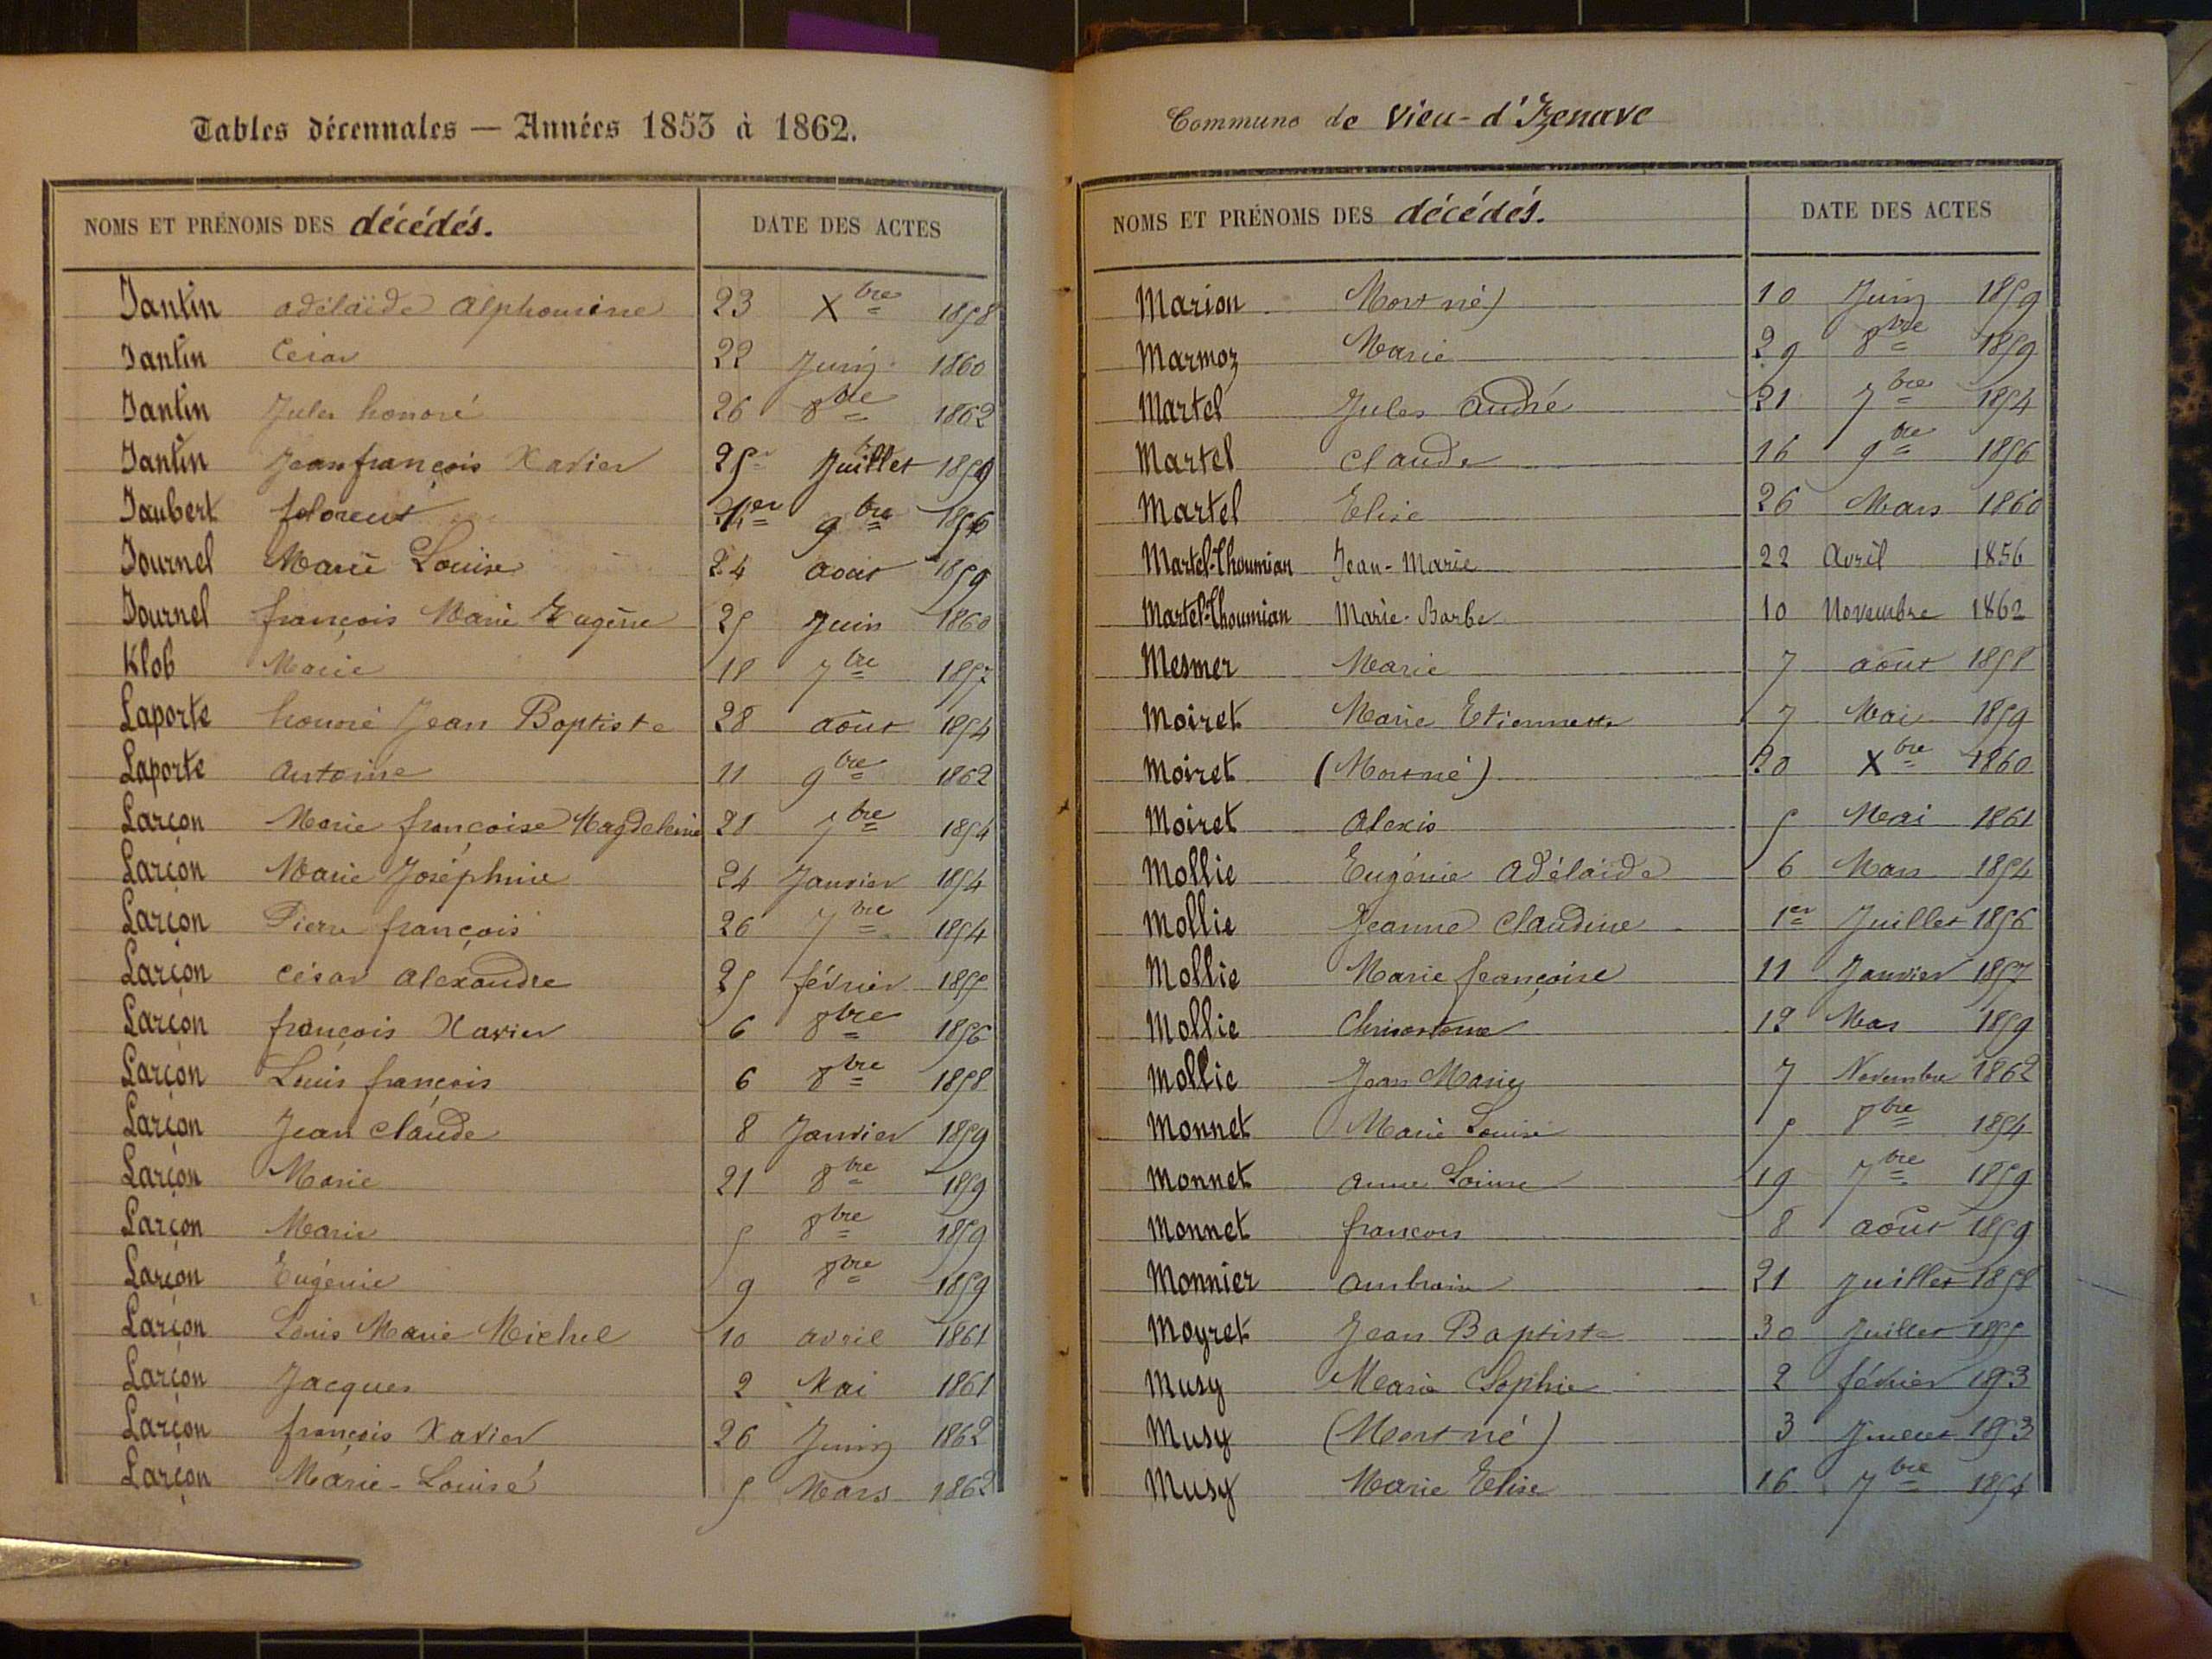 Tables décennales — Années 1853 à 1862.
NOMS ET PRÉNOMS DES décédés. DATE DES ACTES
Jantin adélaïde alphonsine 23 Xbre 1858
Jantin César 22 Juin 1860
Jantin Jules honoré 26 8bre 1862
Jantin Jean françois Xavier 25 Juillet 1859
Jaubert florent 1er 9bre 1856
Journel Marie Louise 24 aout 1859
Journel françois Marie Eugène 25 Juin 1860
Klob Marie 18 7bre 1857
Laporte honoré Jean Baptiste 28 août 1854
Laporte antoine 11 9bre 1862
Larçon Marie françoise Magdeleine 21 7bre 1854
Larçon Marie Joséphine 24 Janvier 1854
Larçon Pierre françois 26 7bre 1854
Larçon César alexandre 25 février 1855
Larçon françois Xavier 6 8bre 1856
Larçon Louis françois 6 8bre 1858
Larçon Jean claude 8 Janvier 1859
Larçon Marie 21 8bre 1859
Larçon Marie 5 8bre 1859
Larçon Eugénie 9 8bre 1859
Larçon Louis Marie Michel 10 avril 1861
Larçon Jacques 2 Mai 1861
Larçon françois Xavier 26 Juin 1862
Larçon Marie-Louise 5 Mars 1862
Commune de Vieu-d'Izenave
NOMS ET PRÉNOMS DES décédés. DATE DES ACTES
Marion Mort né) 10 Juin 1859
Marmoz Marie 29 8bre 1859
Martel Jules andré 21 7bre 1854
Martel Claude 16 9bre 1856
Martel Elise 26 Mars 1860
Martel-Thoumian Jean-Marie 22 Avril 1856
Martel-Thoumian Marie-Barbe 10 Novembre 1862
Mesmer Marie 7 août 1858
Moiret Marie Etiennette 7 Mai 1859
Moiret (Mort né) 20 Xbre 1860
Moiret alexis 5 Mai 1861
Mollie Eugénie adélaïde 6 Mars 1854
Mollie Jeanne Claudine 1er Juillet 1856
Mollie Marie françoise 11 Janvier 1857
Mollie Chrisostome 12 Mars 1859
Mollie Jean Marie 7 Novembre 1862
Monnet Marie Louise 5 8bre 1854
Monnet anne Louise 19 7bre 1859
Monnet françois 8 août 1859
Monnier 21 Juillet 1858
Moyret Jean Baptiste 30 Juillet 1855
Musy Marie Sophie 2 février 1853
Musy (Mort né) 3 Juillet 1853
Musy Marie Elise 16 7bre 1854